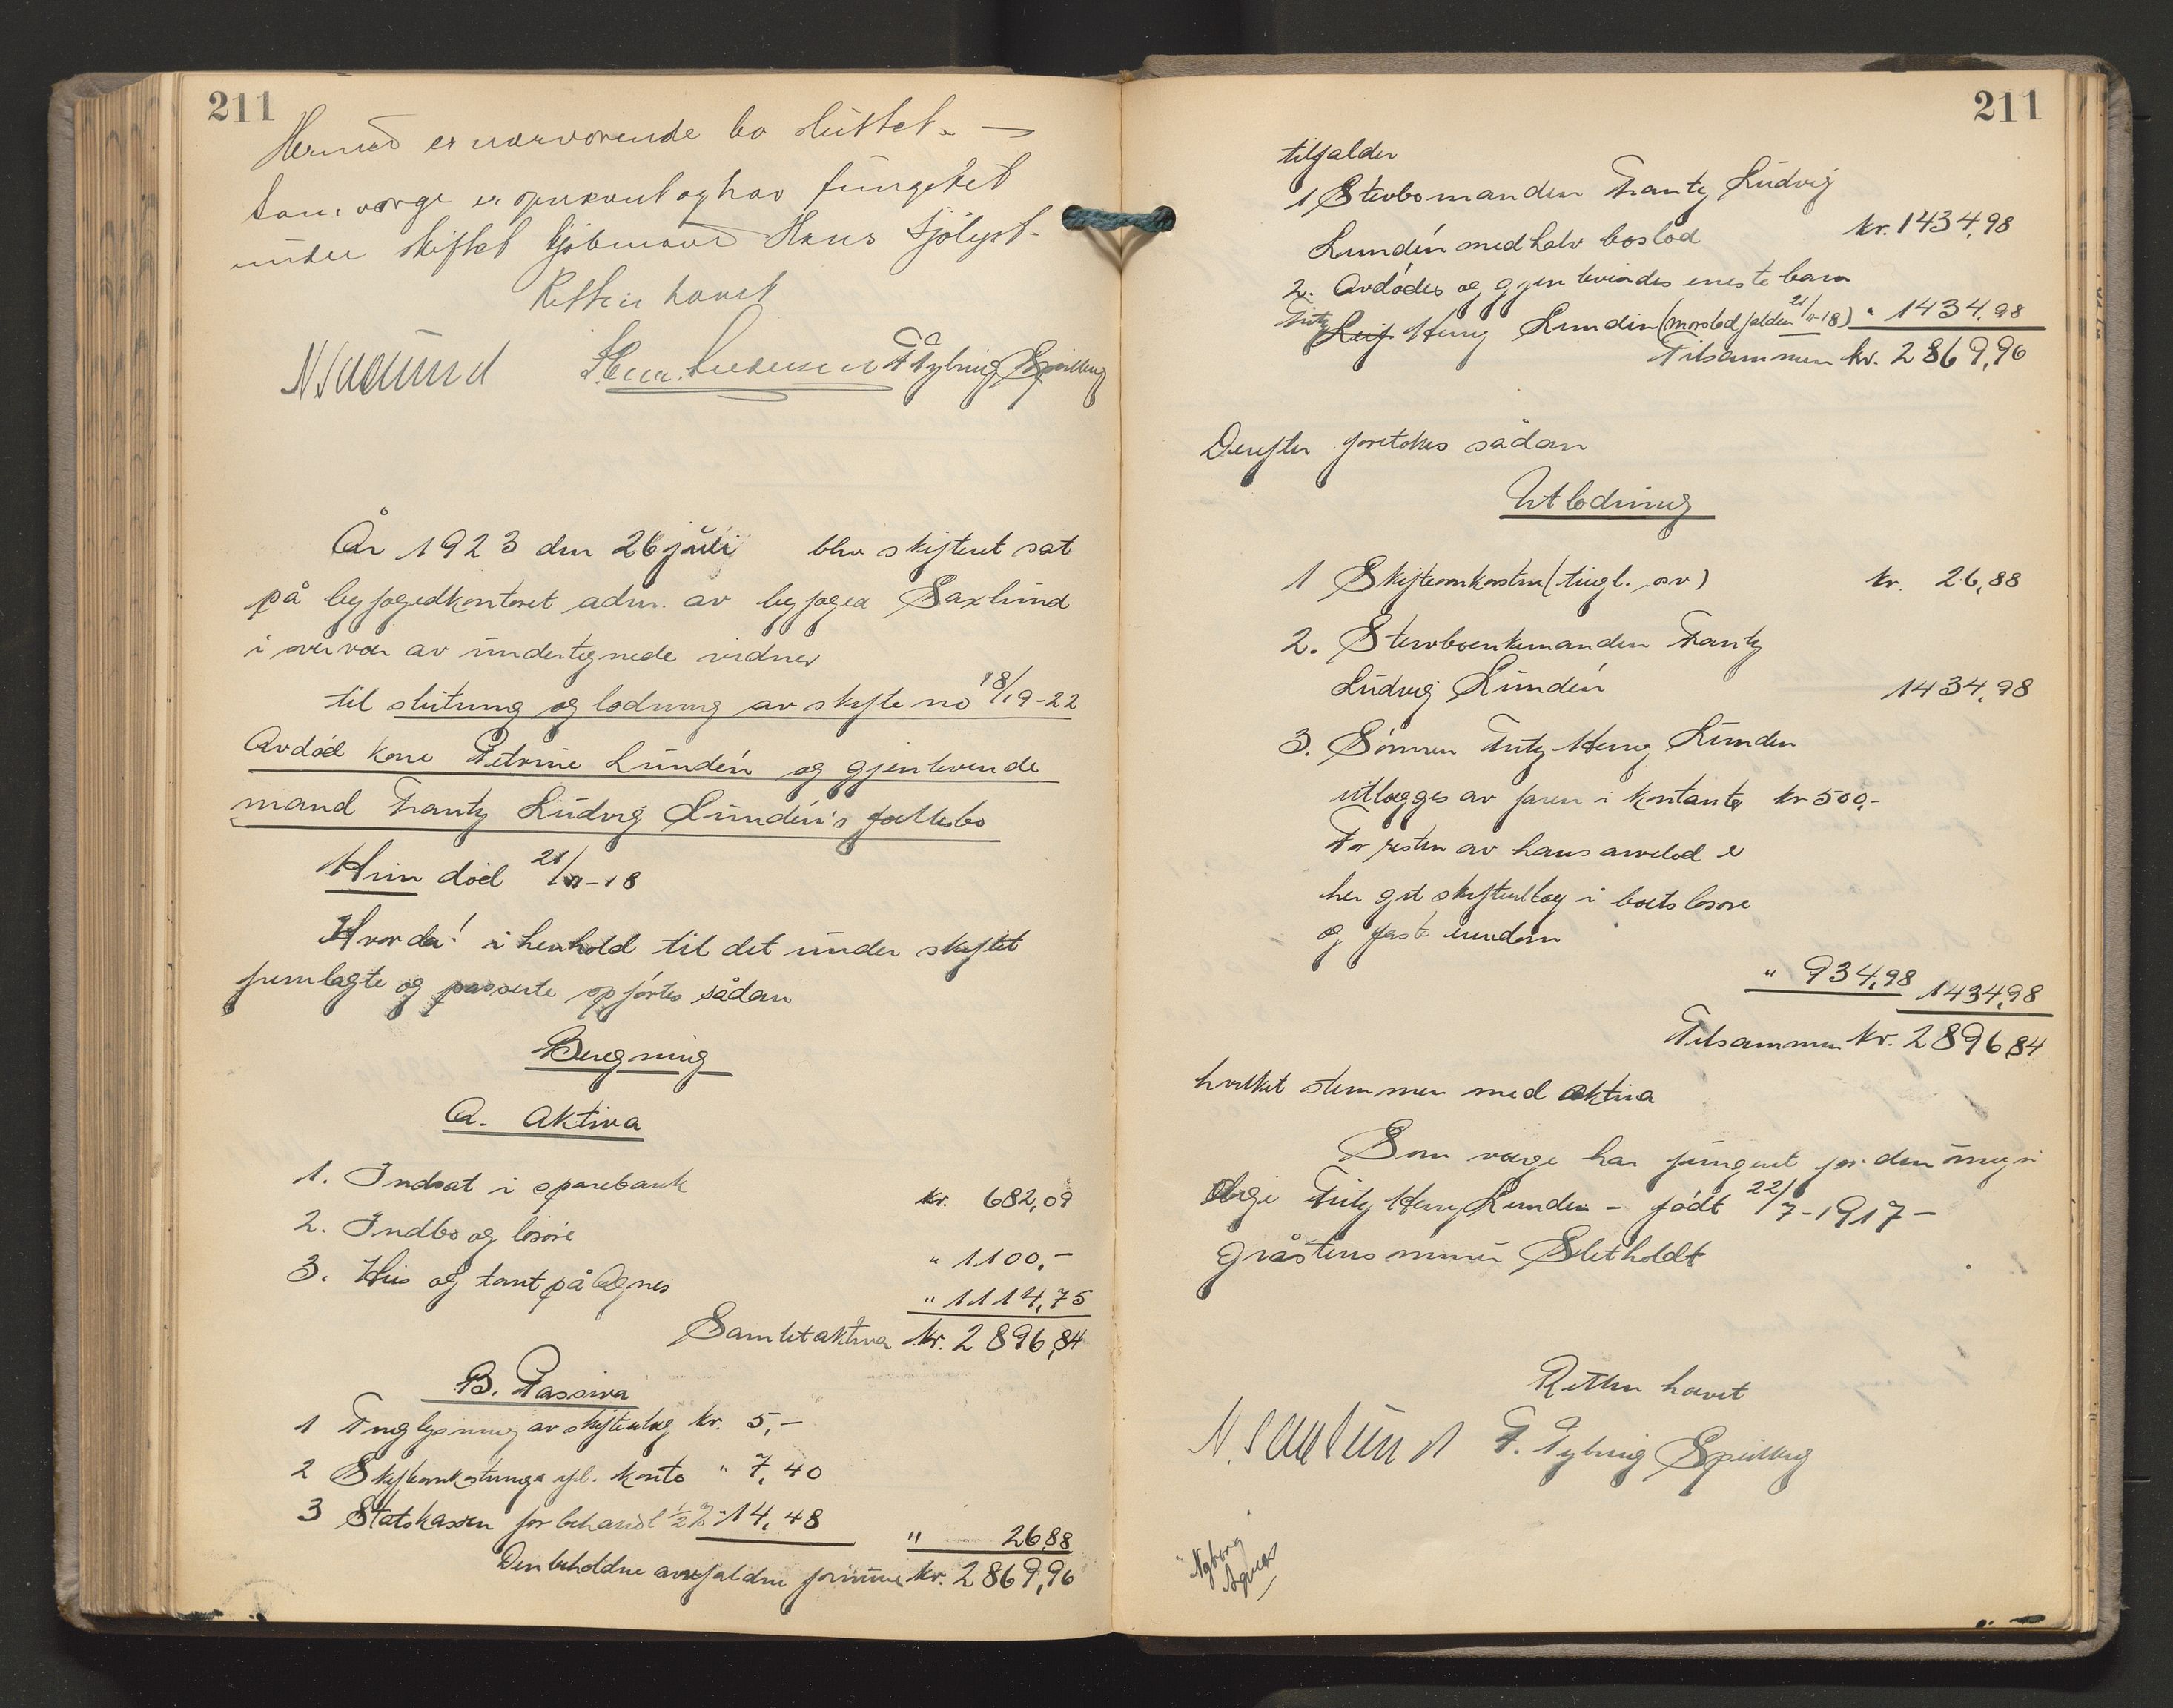 211
Hermed er nærværende bo sluttet. —
Som verge er opnævnt og har fungeret
under skiftet kjøbmand Hans Sjølyst.
Retten hævet
N Saxlund F Tybring Spilling
År 1923 den 26 juli blev skifteret sat
på byfogedkontoret adm. av byfoged Saxlund
i overvær av undertegnede vidner
til slutning og lodning av skifte no 18/19-22
Avdød kone Petrine Lundén og gjenlevende
mand Frantz Ludvig Lundén's fællesbo
Hun død 21/11-18
Hvorda! i henhold til det under skiftet
fremlagte og passerte opførtes sådan
Beregning
A. Aktiva
1. Indsat i sparebank kr. 682,09
2. Indbo og løsøre " 1100,-
3. Hus og tomt på Agnes " 1114,75
Samlet aktiva kr. 2896,84
B. Passiva
1 Tinglysning av skifteutlæg kr. 5,-
2 Skifteomkostninger ifl. konto " 7,40
3 Statskassen for behandl ½ % " 14,48 " 26,88
Den beholdne arvefaldne formue kr. 2869,96
211
tilfalder
1 Stervbomanden Frantz Ludvig
Lundén med halv boslod kr. 1434,98
2. Avdødes og gjenlevendes eneste barn
Fritz Leif Henry Lundén (morslod falden 21/11-18) " 1434,98
Tilsammen kr. 2869,96
Derefter foretokes sådan
Utlodning
1 Skifteomkostn (tingl. osv) kr. 26,88
2. Stervboenkemanden Frantz
Ludvig Lundén 1434,98
3. Sønnen Fritz Henry Lunden
utlægges av faren i kontanter kr 500,-
For resten av hans arvelod er
her git skifteutlæg i boets løsøre
og faste eiendom
" 934,98 1434,98
Tilsammen kr. 2896,84
hvilket stemmer med aktiva
Som værge har fungeret for den umyn
dige Fritz Henry Lunden - født 22/7-1917 -
gråstensminer Sletholdt
Retten hævet
N. Saxlund F. Tybring Spilling
"Nyborg
Agnes